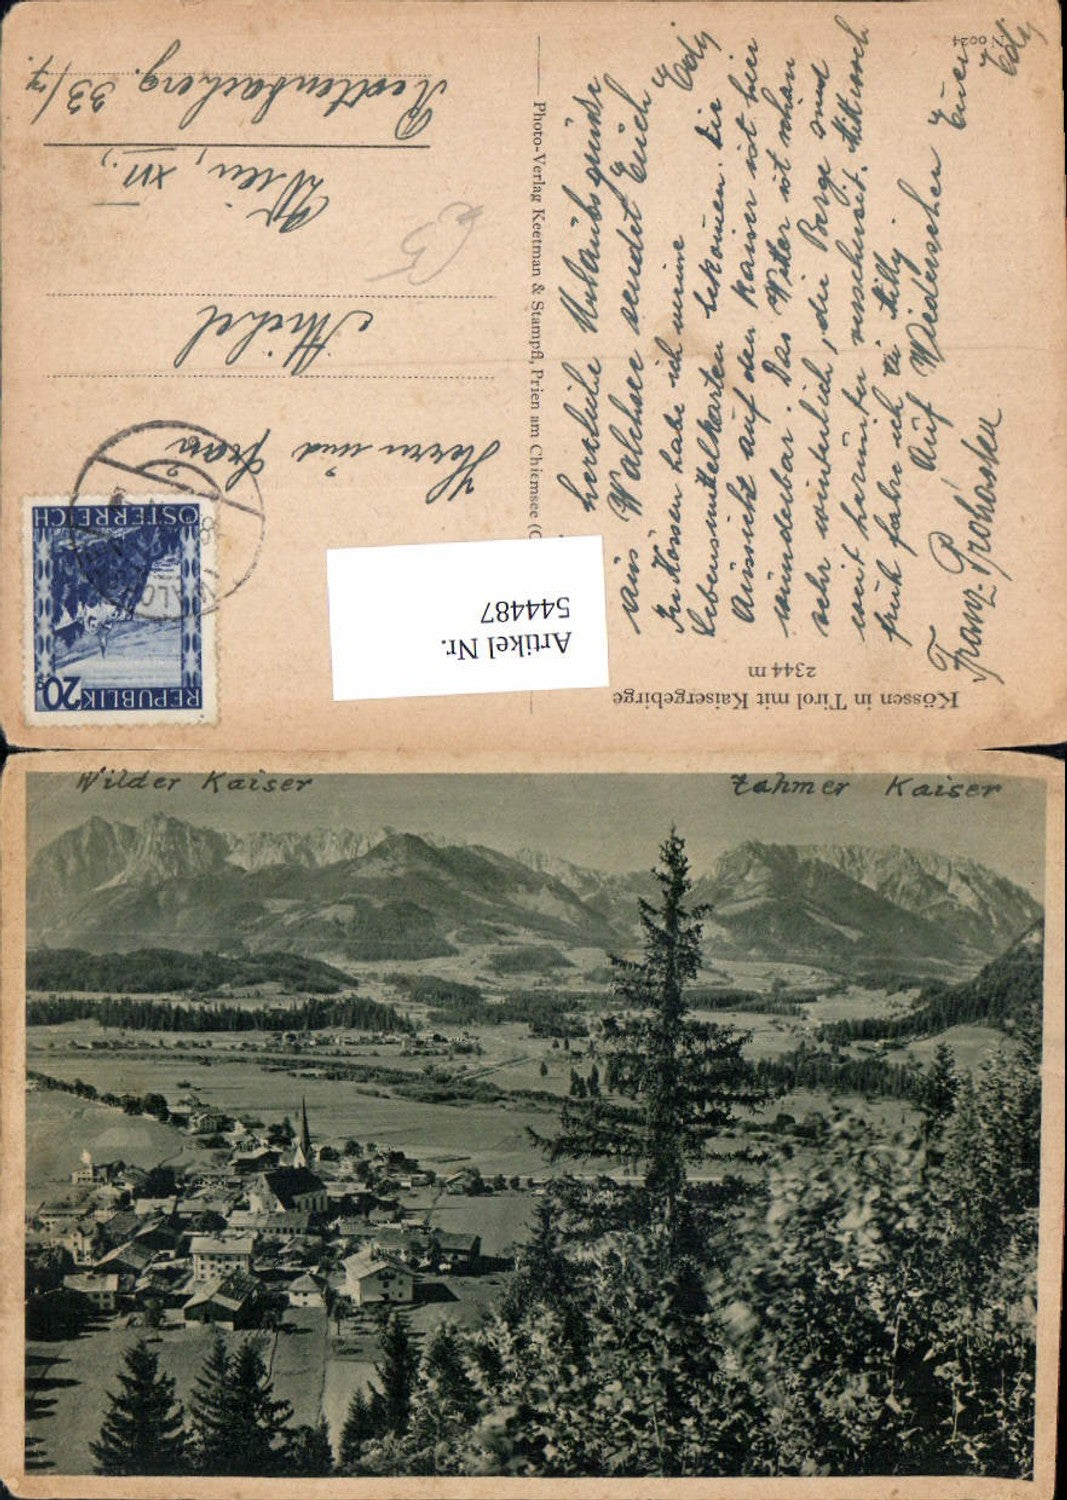 Kössen in Tirol mit Kaisergebirge
2344 m
herzliche Urlaubsgrüße
aus Walchsee sendet Euch Edy
In Kössen habe ich meine
Lebensmittelkarten bekomen. Die
Aussicht auf den Kaiser ist hier
wunderbar. Das Wetter ist schön
sehr winterlich, die Berge sind
weit herunter verschneit. Mittwoch
früh fahre ich zu Milly
Auf Wiedersehen Euer
Edy
Franz Prohaska
Photo-Verlag Keetman & Stampfl, Prien am Chiemsee
REPUBLIK 20
ÖSTERREICH
Artikel Nr.
544487
Herrn und Frau
Michel
Wien, XII.,
Rottenbacherg. 33/7.
Wilder Kaiser
Zahmer Kaiser